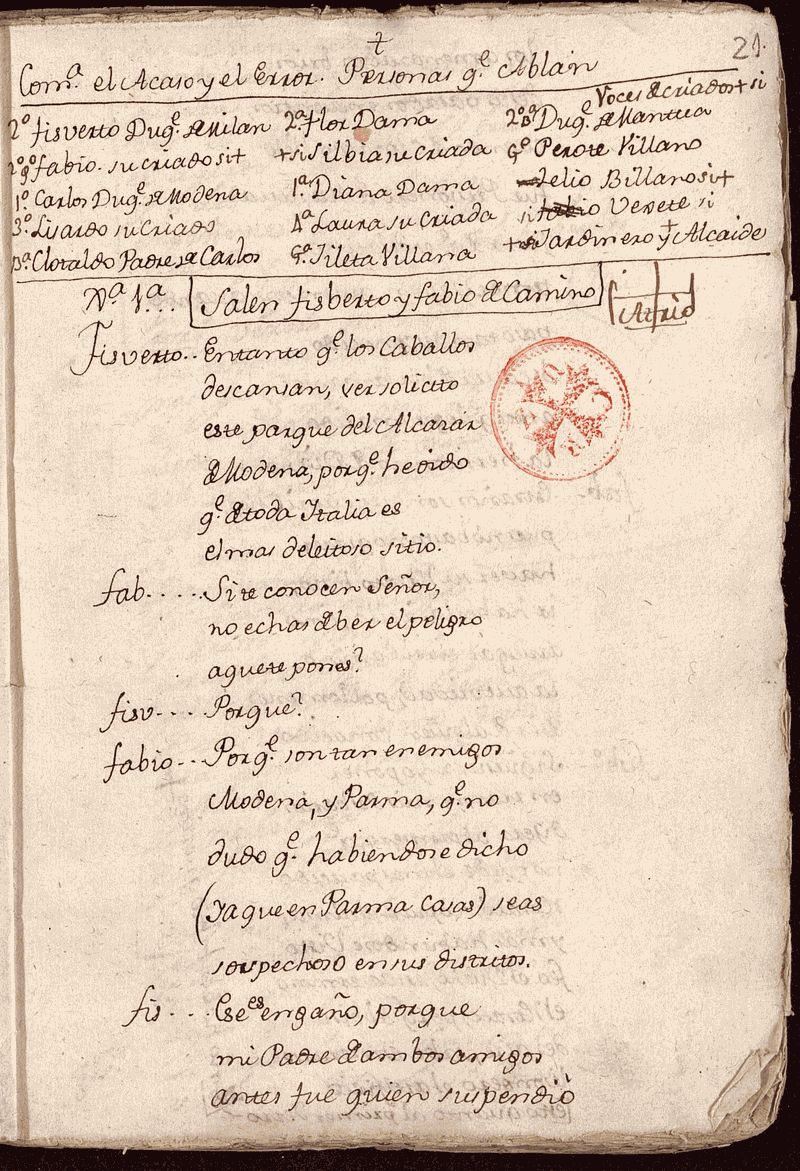 21.
Com.ª el Acaso y el Error. Personas q.e Ablan
Voces de criados + si
2º fisverto Duq.e de Milan 2.ª Flor Dama 2.º Bª Duq.e de Mantua
fabio. su criado si + + si Silbia su Criada Gº Perote Villano
1º. Carlos Duq.e de Modena 1.ª Diana Dama Lelio Billano si +
3º. Lisardo su Criado 4ª Laura su Criada si fabio Vejete si
Bª. Clotaldo Padre de Carlos Gª. Jileta Villana + si Jardinero y Alcaide
Jª. 1.ª... Salen fisberto y fabio de Camino
Fisverto.. Entanto q.e los Caballos
descansan, ver solicito
este parque del Alcazar
de Modena, porq.e he oido
q.e de toda Italia es
el mas deleitoso sitio.
fab..... Si te conocen Señor,
no echas de ber el peligro
a que te pones?
fisv.... Porque?
fabio... Porq.e son tan enemigos
Modena, y Parma, q.e no
dudo q.e habiendose dicho
(Ya que en Parma Casas) seas
sospechoso en sus distritos.
fis.... Ese es engaño, porque
mi Padre de ambos amigos
antes fue quien suspendiò